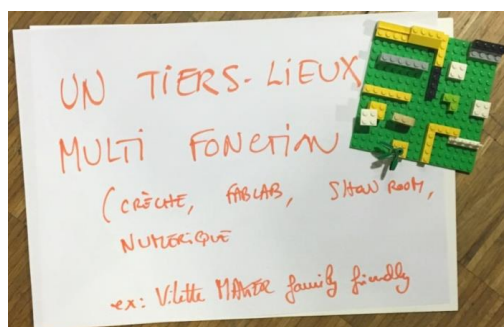 UN TIERS-LIEUX
MULTI FONCTION
(CRÈCHE, FABLAB, SHOW ROOM,
NUMERIQUE
ex: Vilette MAKER family friendly